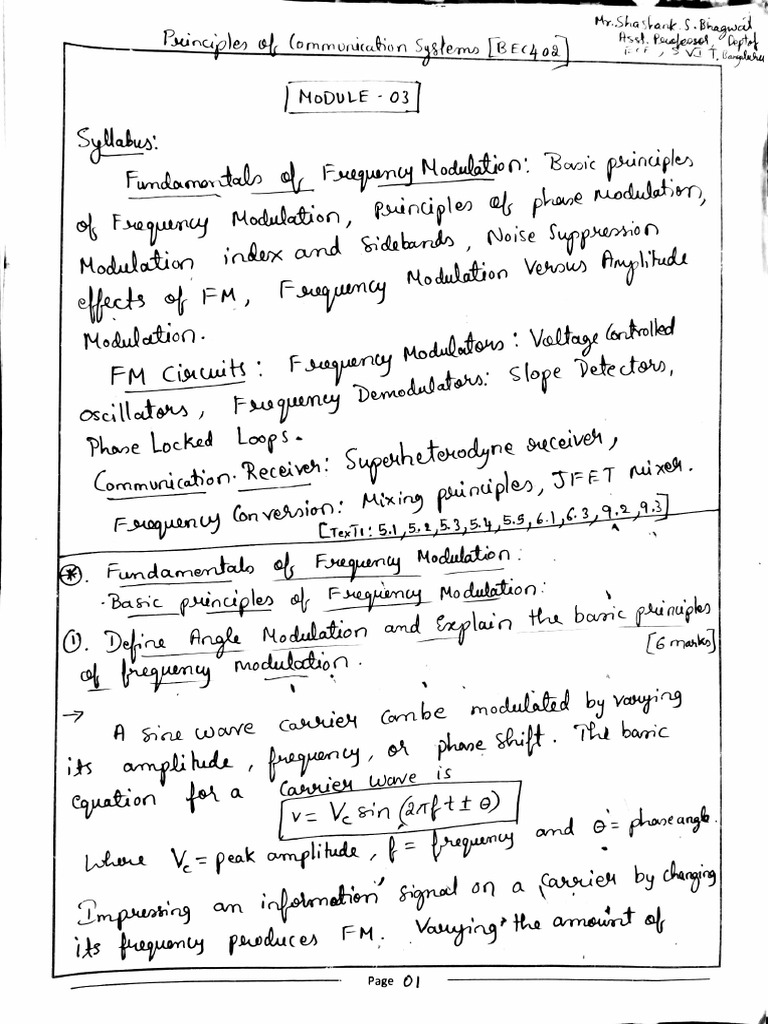 Mr. Shashank. S. Bhagwat
Asst. Professor, Dept of
ECE, SVIT, Bangalore
Principles of Communication Systems [BEC402]
MODULE - 03
Syllabus:
Fundamentals of Frequency Modulation: Basic principles
of Frequency Modulation, principles of phase Modulation,
Modulation index and sidebands, Noise Suppression
effects of FM, Frequency Modulation Versus Amplitude
Modulation.
FM Circuits: Frequency Modulators: Voltage Controlled
oscillators, Frequency Demodulators: Slope Detectors,
Phase Locked Loops.
Communication Receiver: Superheterodyne receiver,
Frequency Conversion: Mixing principles, JFET mixer.
[TexT1: 5.1, 5.2, 5.3, 5.4, 5.5, 6.1, 6.3, 9.2, 9.3]
⊛. Fundamentals of Frequency Modulation:
· Basic principles of Frequency Modulation:
①. Define Angle Modulation and Explain the basic principles
of frequency modulation. [6 marks]
→ A sine wave carrier can be modulated by varying
its amplitude, frequency, or phase shift. The basic
equation for a carrier wave is
v = Vc sin (2πf t ± θ)
Where Vc = peak amplitude, f = frequency and θ = phase angle.
Impressing an information signal on a carrier by changing
its frequency produces FM. Varying the amount of
Page 01